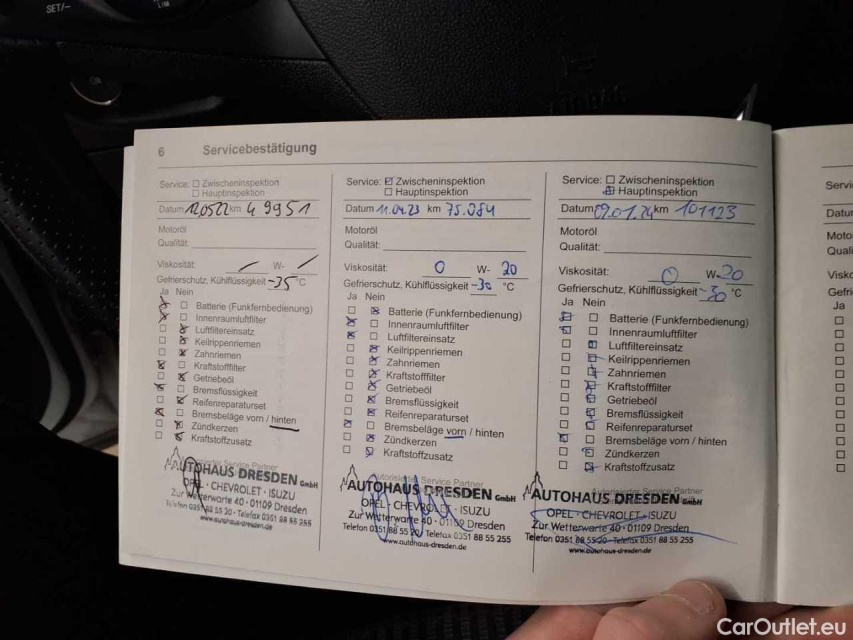 SET/-
6 Servicebestätigung
Service: Zwischeninspektion
Hauptinspektion
Datum 12.05.22 km 49951
Motoröl
Qualität:
Viskosität: / W- /
Gefrierschutz, Kühlflüssigkeit -35 °C
Ja Nein
Batterie (Funkfernbedienung)
Innenraumluftfilter
Luftfiltereinsatz
Keilrippenriemen
Zahnriemen
Kraftstofffilter
Getriebeöl
Bremsflüssigkeit
Reifenreparaturset
Bremsbeläge vorn / hinten
Zündkerzen
Kraftstoffzusatz
Autorisierter Service Partner
AUTOHAUS DRESDEN GmbH
OPEL · CHEVROLET · ISUZU
Zur Wetterwarte 40 · 01109 Dresden
Telefon 0351 88 55 20 - Telefax 0351 88 55 255
www.autohaus-dresden.de
Service: Zwischeninspektion
Hauptinspektion
Datum 11.04.23 km 75.084
Motoröl
Qualität:
Viskosität: 0 W- 20
Gefrierschutz, Kühlflüssigkeit -30 °C
Ja Nein
Batterie (Funkfernbedienung)
Innenraumluftfilter
Luftfiltereinsatz
Keilrippenriemen
Zahnriemen
Kraftstofffilter
Getriebeöl
Bremsflüssigkeit
Reifenreparaturset
Bremsbeläge vorn / hinten
Zündkerzen
Kraftstoffzusatz
Autorisierter Service Partner
AUTOHAUS DRESDEN GmbH
OPEL · CHEVROLET · ISUZU
Zur Wetterwarte 40 · 01109 Dresden
Telefon 0351 88 55 20 · Telefax 0351 88 55 255
www.autohaus-dresden.de
Service: Zwischeninspektion
Hauptinspektion
Datum 09.01.24 km 101123
Motoröl
Qualität:
Viskosität: 0 W- 20
Gefrierschutz, Kühlflüssigkeit -30 °C
Ja Nein
Batterie (Funkfernbedienung)
Innenraumluftfilter
Luftfiltereinsatz
Keilrippenriemen
Zahnriemen
Kraftstofffilter
Getriebeöl
Bremsflüssigkeit
Reifenreparaturset
Bremsbeläge vorn / hinten
Zündkerzen
Kraftstoffzusatz
Autorisierter Service Partner
AUTOHAUS DRESDEN GmbH
OPEL · CHEVROLET · ISUZU
Zur Wetterwarte 40 · 01109 Dresden
Telefon 0351 88 55 20 - Telefax 0351 88 55 255
www.autohaus-dresden.de
Ja
CarOutlet.eu